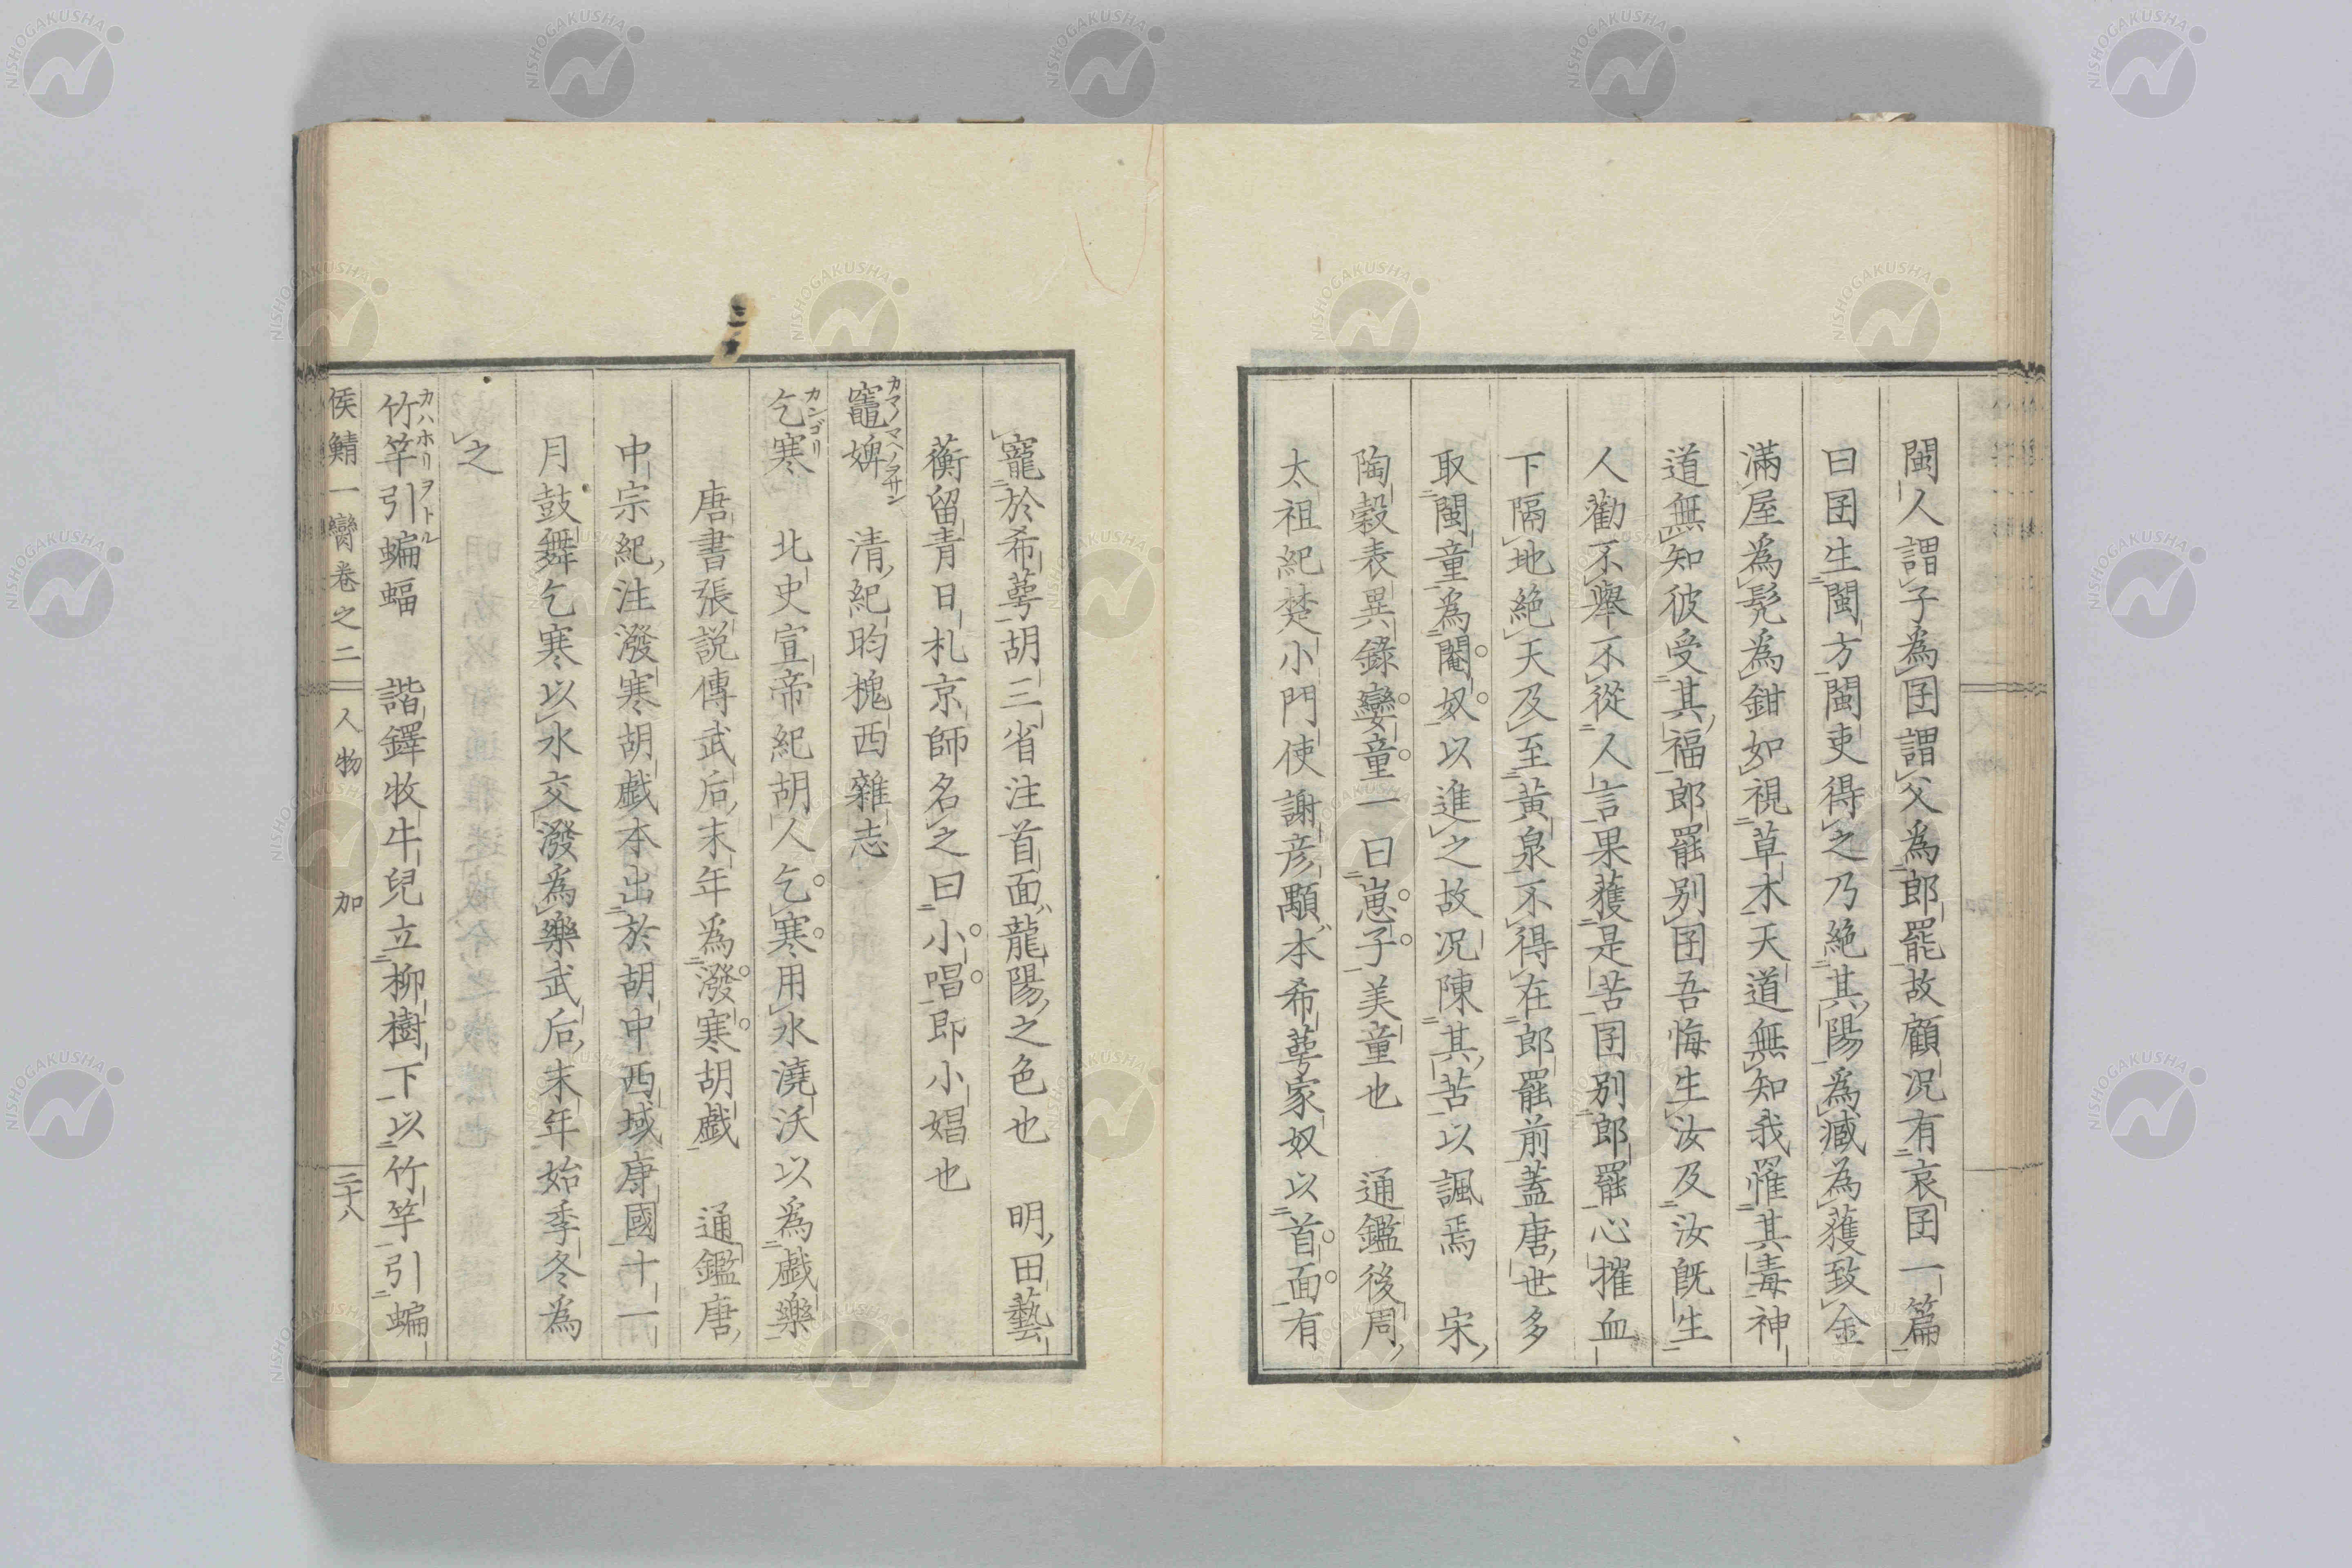 閩人謂子為囝謂父為郎罷故顧况有哀囝一篇
曰囝生閩方閩吏得之乃絶其陽為臧為獲致金
滿屋為髠為鉗如視草木天道無知我罹其毒神
道無知彼受其福郎罷别囝吾悔生汝及汝既生
人勸不舉不從人言果獲是苦囝别郎罷心摧血
下隔地絶天及至黄泉不得在郎罷前蓋唐世多
取閩童為閹奴以進之故况陳其苦以諷焉　宋
陶穀表異錄孌童一曰崽子美童也　通鑑後周
太祖紀楚小門使謝彦顒本希萼家奴以首面有
寵於希萼胡三省注首面龍陽之色也　明田藝
蘅留青日札京師名之曰小唱即小娼也
竈婢　清紀昀槐西雜志
カマノマヘノヲサン
乞寒　北史宣帝紀胡人乞寒用水澆沃以為戯樂
カンゴリ
唐書張説傳武后末年為潑寒胡戯　通鑑唐
中宗紀注潑寒胡戯本出於胡中西域康國十一
月鼓舞乞寒以水交潑為樂武后末年始季冬為
之
竹竿引蝙蝠　諧鐸牧牛兒立柳樹下以竹竿引蝙
カハホリヲトル
侯鯖一臠卷之二　人物　加　二十八
NISHOGAKUSHA